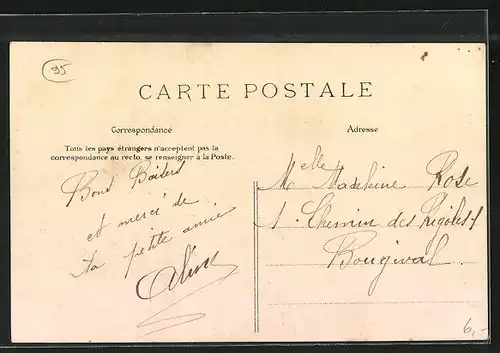 95
CARTE POSTALE
Correspondance
Adresse
Tous les pays étrangers n'acceptent pas la
correspondance au recto, se renseigner à la Poste.
Bons Baisers
et merci de
ta petite amie
Aline
Melle Madeleine Rose
1 Chemin des
Bougival.
6,-